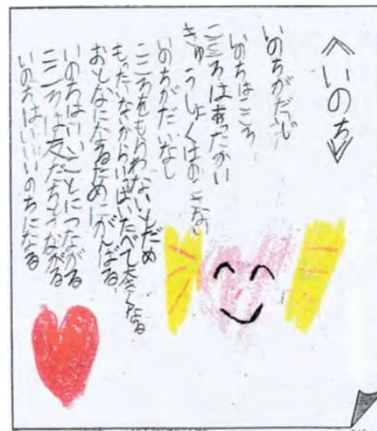 《いのち》
いのちがだいじ
いのちはこころ
こころはあったかい
きゅうしょくはのこさない
いのちがだいなし
こころをもらわないもだめ
もったいないからいっぱいたべて大きくなる
おとなになるためにがんばる
いのちはいいことにつながる
こころは友だちとつながる
いのちはいいいのちになる